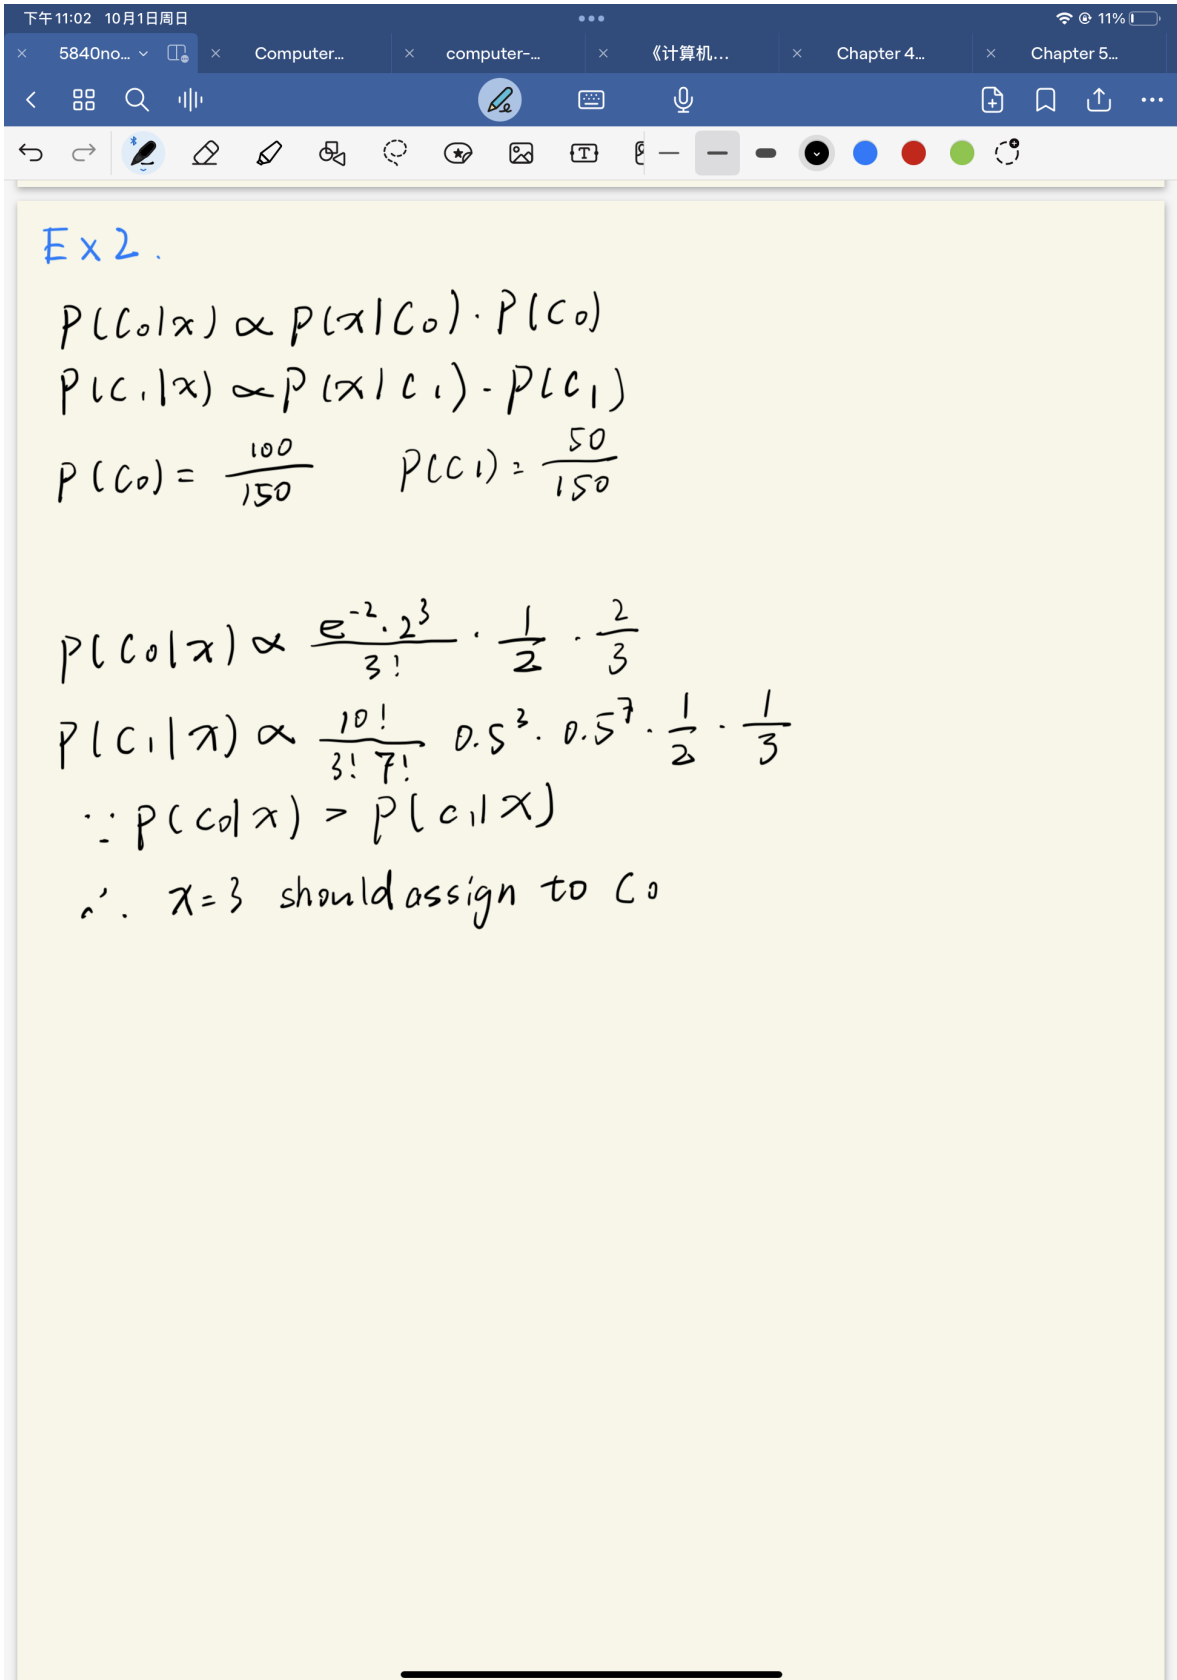 下午11:02 10月1日周日 11%
5840no... Computer... computer-... 《计算机... Chapter 4... Chapter 5...
T
Ex2.
P(C₀|x) ∝ P(x|C₀)·P(C₀)
P(C₁|x) ∝ P(x|C₁)-P(C₁)
P(C₀) = 100/150 P(C₁) = 50/150
P(C₀|x) ∝ e⁻²·2³/3! · 1/2 · 2/3
P(C₁|x) ∝ 10!/3! 7! 0.5³· 0.5⁷ · 1/2 · 1/3
∵ P(C₀|x) > P(C₁|x)
∴ x=3 should assign to C₀